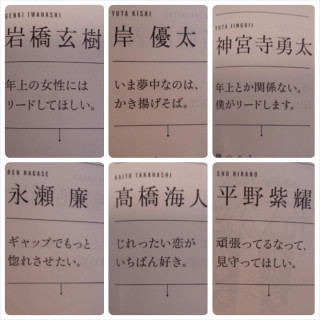 GENKI IWAHASHI
岩橋玄樹
年上の女性には
リードしてほしい。
YUTA KISHI
岸 優太
いま夢中なのは、
かき揚げそば。
YUTA JINGUJI
神宮寺勇太
年上とか関係ない。
僕がリードします。
REN NAGASE
永瀬 廉
ギャップでもっと
惚れさせたい。
KAITO TAKAHASHI
髙橋海人
じれったい恋が
いちばん好き。
SHO HIRANO
平野紫耀
頑張ってるなって、
見守ってほしい。